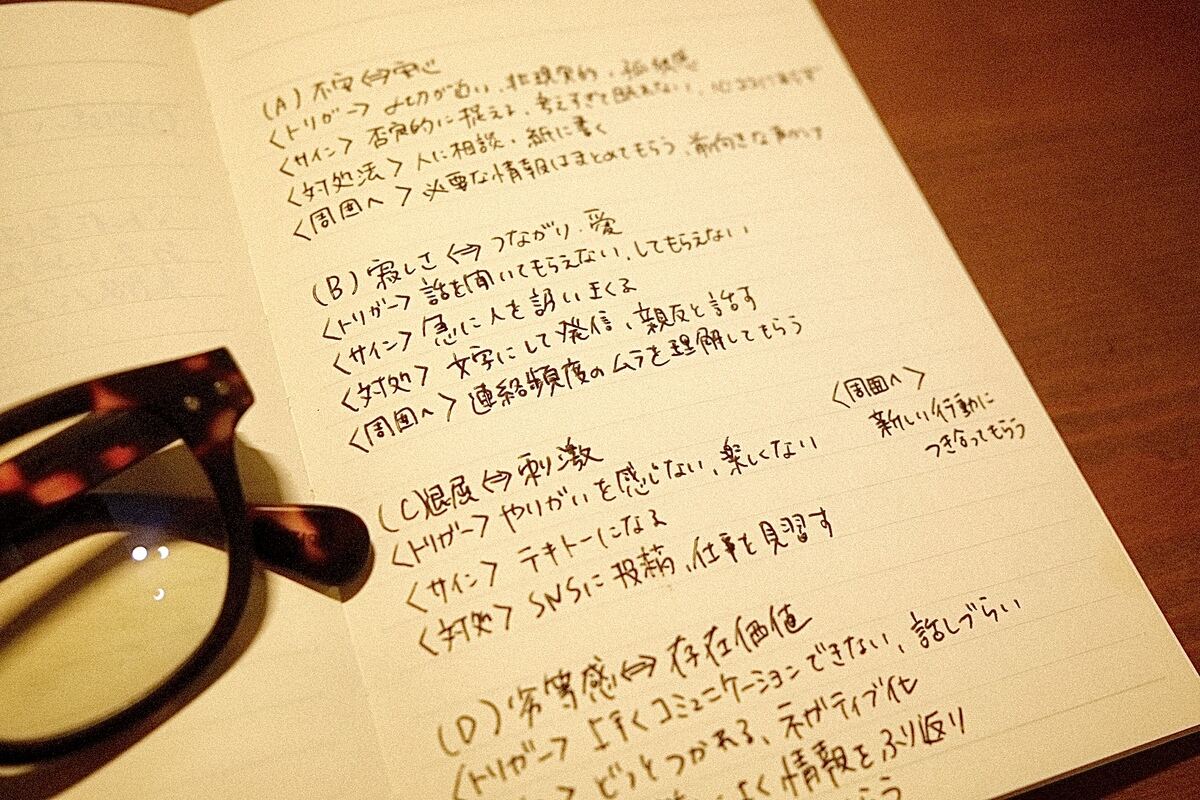 (A) 不安⇔安心
<トリガー> 〆切が近い、非現実的、孤独感
<サイン> 否定的に捉える、考えすぎて眠れない、
<対処法> 人に相談・紙に書く
<周囲へ> 必要な情報はまとめてもらう、前向きな声かけ
(B) 寂しさ⇔つながり・愛
<トリガー> 話を聞いてもらえない、してもらえない
<サイン> 急に人を誘いまくる
<対処> 文字にして発信、親友と話す
<周囲へ> 連絡頻度のムラを理解してもらう
(C) 退屈⇔刺激
<トリガー> やりがいを感じない、楽しくない
<サイン> テキトーになる
<対処> SNSに投稿、仕事を見習す
<周囲へ>
新しい行動に
つき合ってもらう
(D) 劣等感⇔存在価値
<トリガー> 上手くコミュニケーションできない、話しづらい
どっとつかれる、ネガティブ化
よく情報をふり返り